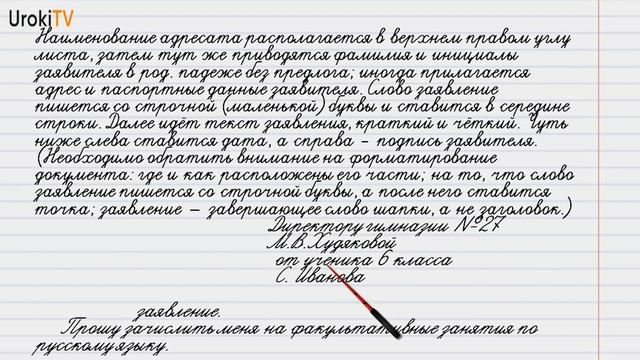 UrokiTV
Наименование адресата располагается в верхнем правом углу
листа, затем тут же приводятся фамилия и инициалы
заявителя в род. падеже без предлога; иногда прилагается
адрес и паспортные данные заявителя. Слово заявление
пишется со строчной (маленькой) буквы и ставится в середине
строки. Далее идёт текст заявления, краткий и чёткий. Чуть
ниже слева ставится дата, а справа – подпись заявителя.
(Необходимо обратить внимание на форматирование
документа: где и как расположены его части; на то, что слово
заявление пишется со строчной буквы, а после него ставится
точка; заявление – завершающее слово шапки, а не заголовок.)
Директору гимназии №27
М.В.Худяковой
от ученика 6 класса
С. Иванова
заявление.
Прошу зачислить меня на факультативные занятия по
русскому языку.